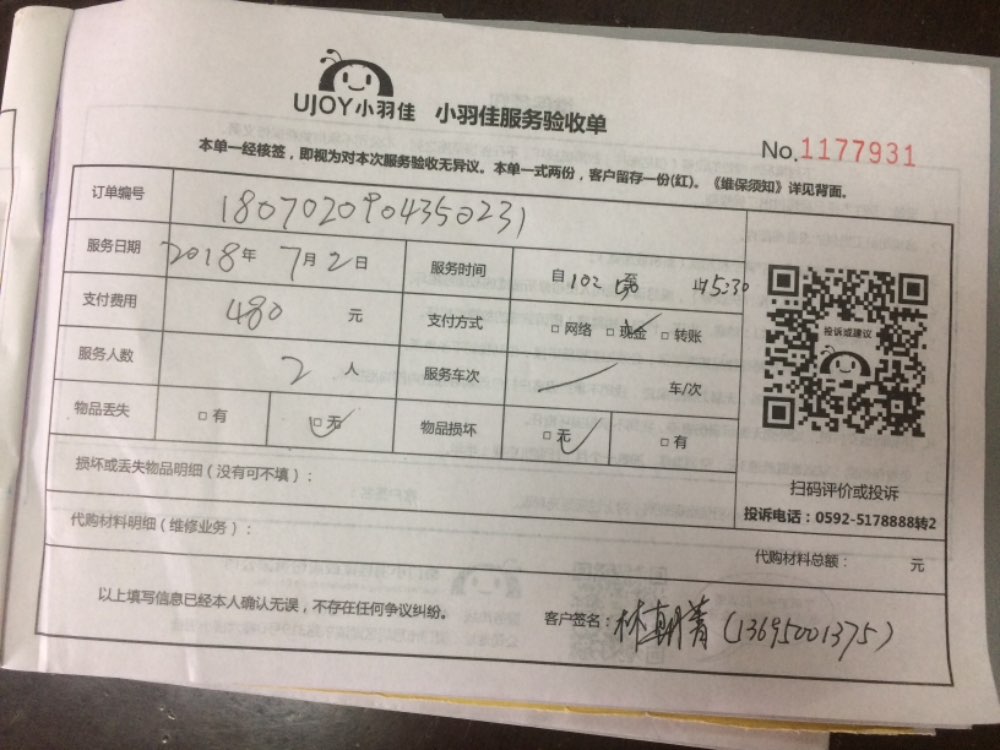 UJOY小羽佳 小羽佳服务验收单
No.1177931
本单一经核签，即视为对本次服务验收无异议。本单一式两份，客户留存一份(红)。《维保须知》详见背面。
订单编号 180702090435 0231
服务日期 2018年 7月 2日 服务时间 自 至
支付费用 480 元 支付方式 □网络 □现金 □转账
投诉或建议
服务人数 2 人 服务车次 车/次
物品丢失 □有 □无 物品损坏 □无 □有
损坏或丢失物品明细（没有可不填）：
扫码评价或投诉
投诉电话：0592-5178888转2
代购材料明细（维修业务）：
代购材料总额： 元
以上填写信息已经本人确认无误，不存在任何争议纠纷。
客户签名：林朝菁（13695001375）